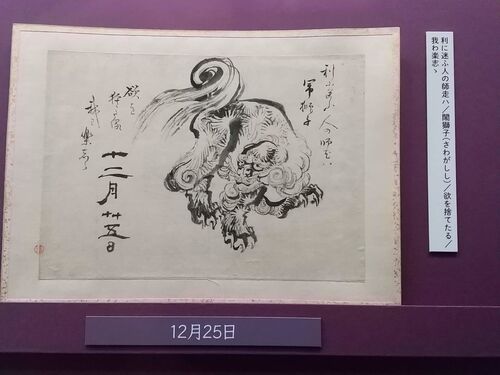 利に迷ふ人の師走ハ/閙獅子(さわがしし)/欲を捨てたる/
我わ楽志ゝ
利に迷ふ人の師走ハ
閙獅子
欲を
捨てたる
我わ楽志ゝ
十二月廿五日
12月25日